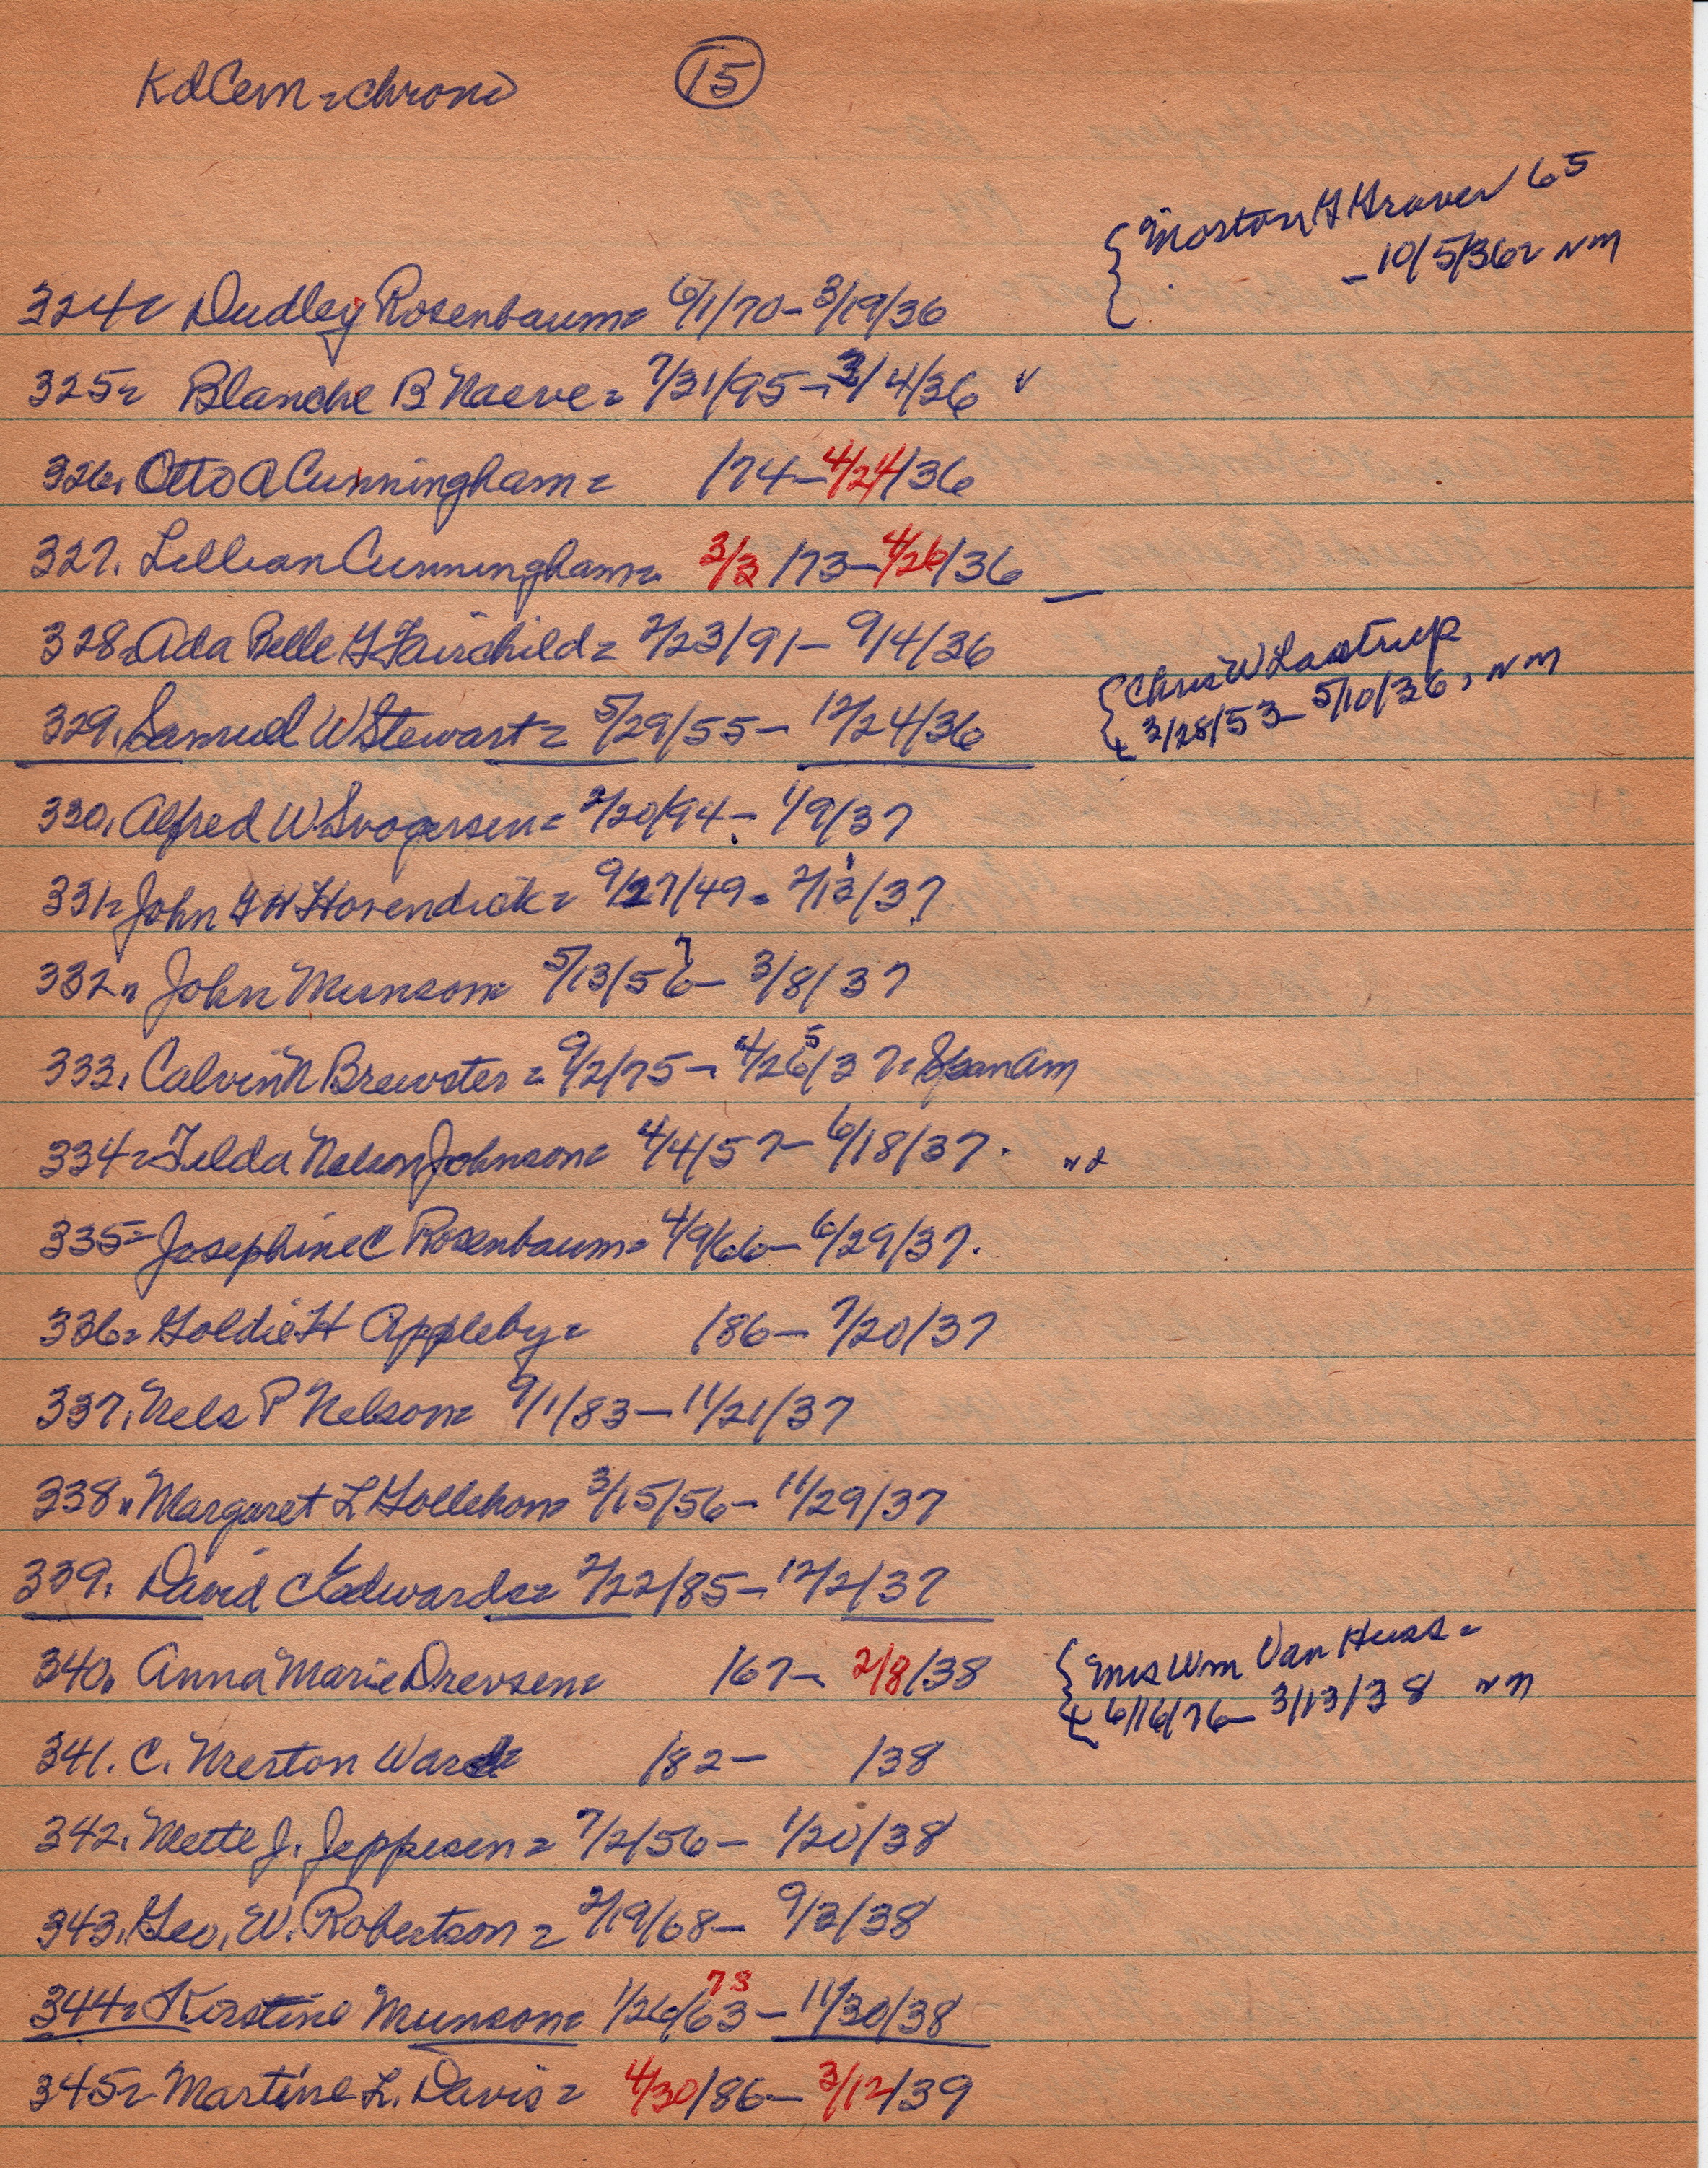 KdCem = chrono
15
{ Morton G Graver 65
– 10/5/36 = nm
324 = Dudley Rosenbaum = 6/1/70 – 3/19/36
325 = Blanche B Naeve = 7/31/95 – 3/4/36 v
326. Otto A Cunningham = /74 – 4/24/36
327. Lillian Cunningham = 3/3/73 – 4/26/36 —
328 = Ada Belle G Fairchild = 2/23/91 – 9/4/36
{ Chris W Lastrup
+ 3/28/53 – 5/10/36, nm
329. Samuel W Stewart = 5/29/55 – 12/24/36
330. Alfred W Svogersen = 2/20/94 – 1/9/37
331 = John G H Hovendick = 9/27/49 = 2/13/37
332 = John Munson = 5/13/56 7 – 3/8/37
333. Calvin N Brewster = 9/2/75 – 4/26 5/37 = SpanAm
334 = Tilda Nelson Johnson = 4/4/57 – 6/18/37. nd
335 = Josephine C Rosenbaum = 4/9/66 – 6/29/37.
336 = Goldie H Appleby = /86 – 7/20/37
337. Nels P Nelson = 9/1/83 – 11/21/37
338. Margaret L Gollehon = 3/15/56 – 11/29/37
339. David C Edwards = 2/22/85 – 12/2/37
340. Anna Marie Drevsen = /67 – 2/8/38
{ Mrs Wm Van Huss =
+ 6/16/76 – 3/13/38 nm
341. C. Merton Ward = /82 – /38
342. Mette J. Jeppesen = 7/2/56 – 1/20/38
343. Geo. W. Robertson = 2/19/68 – 9/3/38
344 = Kirstine Munson = 1/26/63 73 – 11/30/38
345 = Martine L. Davis = 4/30/86 – 3/12/39